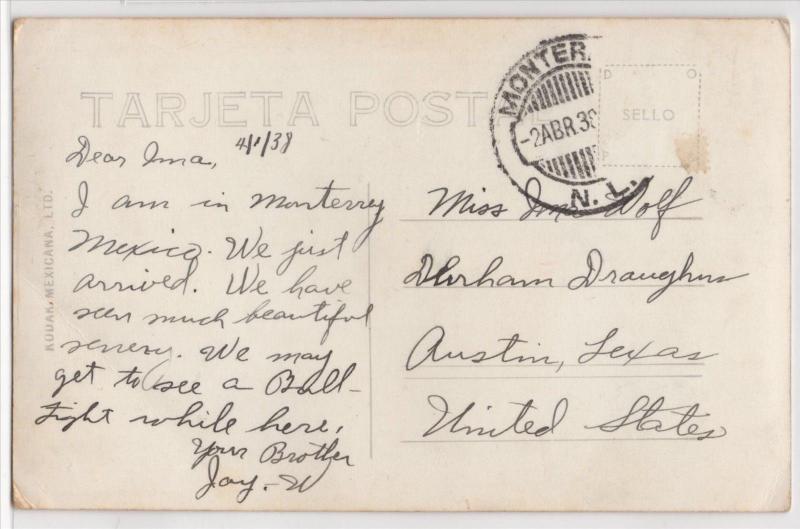 TARJETA POSTAL
MONTER
-2ABR.38
N. L.
D O
SELLO
P
KODAK, MEXICANA, LTD.
4/1/38
Dear Ima,
I am in Monterrey
Mexico. We just
arrived. We have
seen much beautiful
senery. We may
get to see a Bull-
Fight while here.
Your Brother
Jay. W
Miss Ima Wolf
Durham Draughns
Austin, Texas
United States